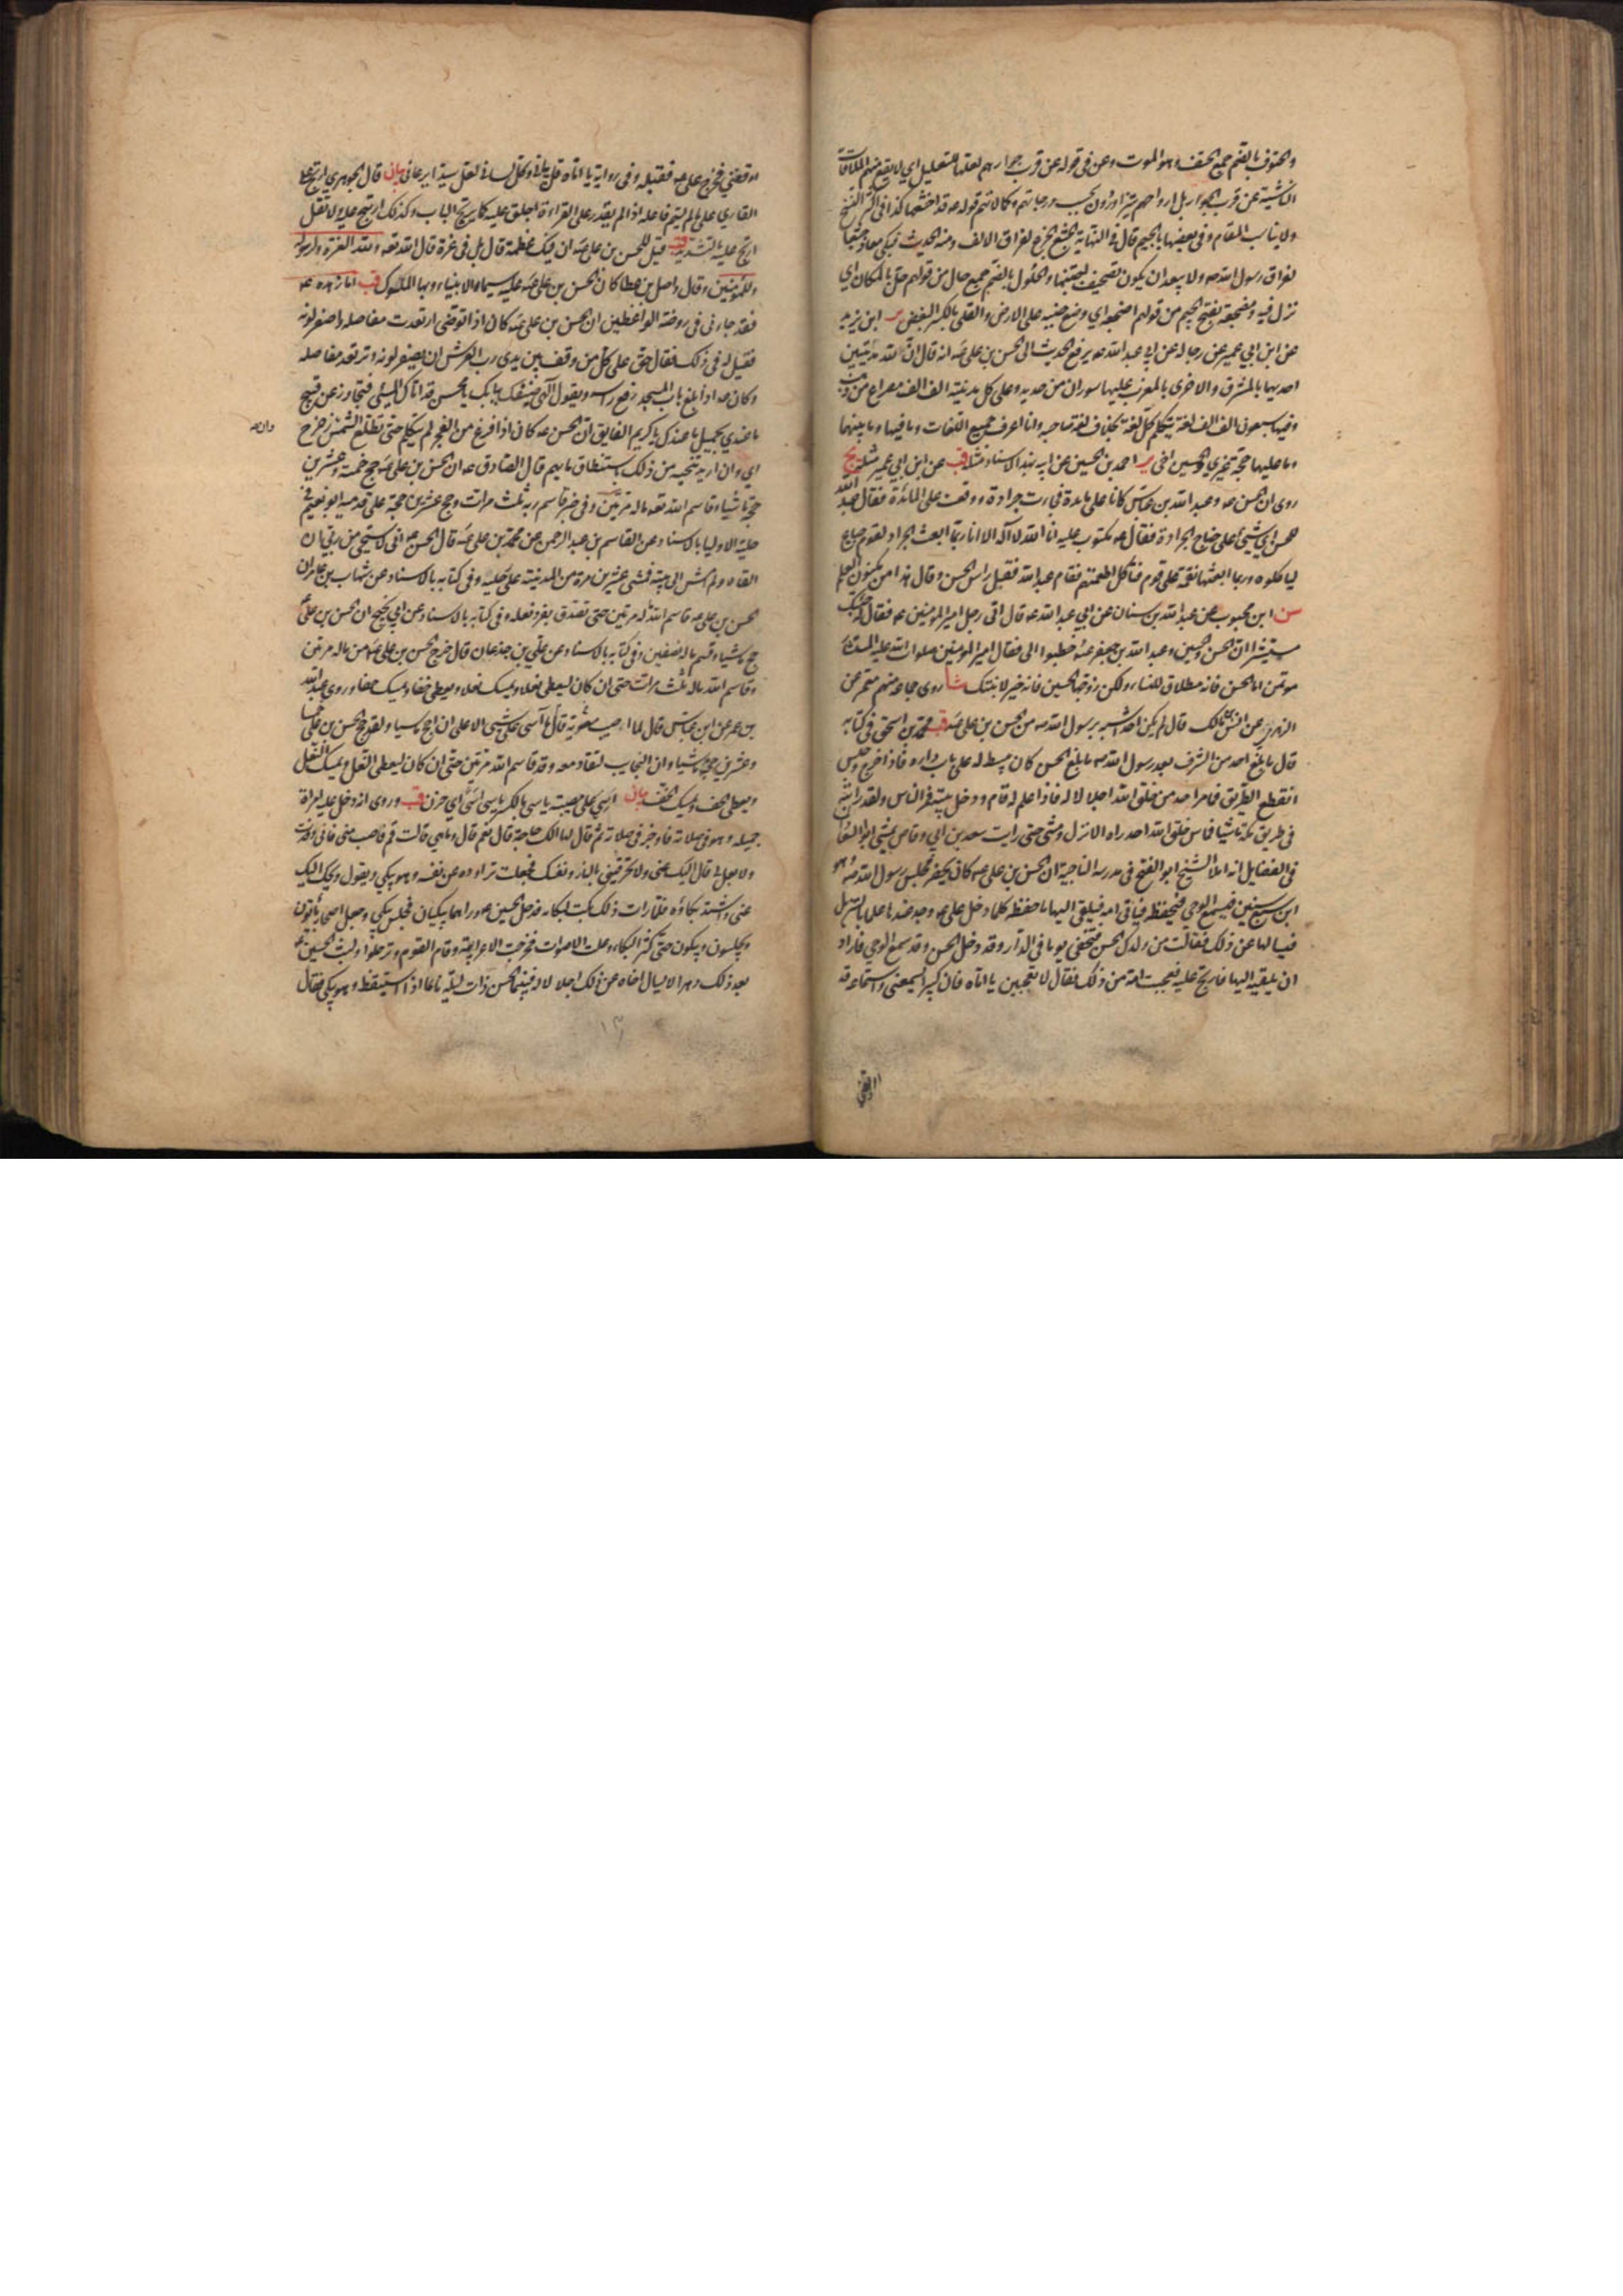 والحتوف بالضم جمع الحتف وهو الموت وعن في قوله عن قرب جوارهم لعلها للتعليل اي لا يقع منهم الملاقات
الناشية عن قرب الجوار بل ارواحهم يتزاورون بحسب درجاتهم وكمالاتهم قوله عه قد اخشعها كذا في اكثر النسخ
ولا يناسب المقام وفي بعضها بالجيم قال في النهاية الجشع الجزع لفراق الالف ومنه الحديث فبكى معاذ جشعا
لفراق رسول الله صه ولا يبعد ان يكون تصحيف والحلول بالضم جمع حال من قولهم حل بالمكان اي
نزل فيه ومضجعة بفتح الجيم من قولهم اضجعه اي وضع جنبه على الارض والقلى بالكسر البغض ير ابن يزيد
عن ابن ابي عمير عن رجاله عن ابي عبد الله عه يرفع الحديث الى الحسن بن علي عه انه قال ان لله مدينتين
احديهما بالمشرق والاخرى بالمغرب عليهما سوران من حديد وعلى كل مدينة الف الف مصراع من ذهب
وفيها سبعون الف الف لغة يتكلم كل لغة بخلاف لغة صاحبه وانا اعرف جميع اللغات وما فيهما وما بينهما
وما عليهما حجة غيري والحسين اخي ير احمد بن الحسين عن ابيه بهذا الاسناد مثله قب عن ابن ابي عمير مثله يج
روى ان الحسن عه وعبد الله بن عباس كانا على مائدة فجاءت جرادة ووقعت على المائدة فقال عبد الله
للحسن اي شيئ مكتوب على جناح الجرادة فقال عه مكتوب عليه انا الله لا اله الا انا ربما ابعث الجراد لقوم جياع
لياكلوه وربما ابعثها نقمة على قوم فتأكل اطعمتهم فقام عبد الله فقبل راس الحسن وقال هذا من مكنون العلم
سن ابن محبوب عن عبد الله بن سنان عن ابي عبد الله عه قال اتى رجل امير المؤمنين عه فقال له جئتك
مستشيرا ان الحسن والحسين وعبد الله بن جعفر عه خطبوا الي فقال امير المؤمنين صلوات الله عليه المستشار
مؤتمن اما الحسن فانه مطلاق للنساء ولكن زوجها الحسين فانه خير لابنتك شا روى جماعة منهم معمر عن
الزهري عن انس بن مالك قال لم يكن احد اشبه برسول الله صه من الحسن بن علي عه قب محمد بن اسحق في كتابه
قال ما بلغ احد من الشرف بعد رسول الله صه ما بلغ الحسن كان يبسط له على باب داره فاذا خرج وجلس
انقطع الطريق فما مر احد من خلق الله اجلالا له فاذا علم قام ودخل بيته فمر الناس ولقد رايته
في طريق مكة ماشيا فما من خلق الله احد راه الا نزل ومشى حتى رايت سعد بن ابي وقاص يمشي ابو السعادات
في الفضايل انه املا الشيخ ابو الفتوح في مدرسة الناجية ان الحسن بن علي عه كان يحضر مجلس رسول الله صه وهو
ابن سبع سنين فيسمع الوحي فيحفظه فياتي امه فيلقي اليها ما حفظه كلما دخل علي عه وجد عندها علما بالتنزيل
فيسألها عن ذلك فقالت من ولدك الحسن فتخفى يوما في الدار وقد دخل الحسن وقد سمع الوحي فاراد
ان يلقيه اليها فارتج عليه فعجبت امه من ذلك فقال لا تعجبين يا اماه فان كبيرا يسمعني واستماعه قد
اوقفني
اوقفني فخرج علي عه فقبله وفي رواية يا اماه قل بياني وكل لساني لعل سيدا يرعاني بيان قال الجوهري ارتج على
القاري على ما لم يسم فاعله اذا لم يقدر على القراءة كانه اطبق عليه كما يرتج الباب وكذلك ارتتج عليه ولا تقل
ارتج عليه بالتشديد قب قيل للحسن بن علي عه ان فيك عظمة قال بل في عزة قال الله تعه ولله العزة ولرسوله
وللمؤمنين وقال واصل بن عطا كان الحسن بن علي عه عليه سيماء الانبياء وبهاء الملوك قب اما زهده عه
فقد جاء في روضة الواعظين ان الحسن بن علي عه كان اذا توضى ارتعدت مفاصله واصفر لونه
فقيل له في ذلك فقال حق على كل من وقف بين يدي رب العرش ان يصفر لونه وترتعد مفاصله
وكان عه اذا بلغ باب المسجد رفع راسه ويقول الهي ضيفك ببابك يا محسن قد اتاك المسيئ فتجاوز عن قبيح
ما عندي بجميل ما عندك يا كريم الفايق ان الحسن عه كان اذا فرغ من الفجر لم يتكلم حتى تطلع الشمس وان زحزح
اي وان اريد تنحيه من ذلك باستنطاق ما يهم قال الصادق عه ان الحسن بن علي عه حج خمسة وعشرين
حجة ماشيا وقاسم الله تعه ماله مرتين وفي خبر قاسم ربه ثلث مرات وحج عشرين حجة على قدميه ابو نعيم في
حلية الاوليا بالاسناد عن القاسم بن عبد الرحمن عن محمد بن علي عه قال الحسن عه اني لاستحيي من ربي ان
القاه ولم امش الى بيته فمشى عشرين مرة من المدينة على رجليه وفي كتابه بالاسناد عن شهاب بن عامر ان
الحسن بن علي عه قاسم الله ماله مرتين حتى تصدق بفرد نعله وفي كتابه بالاسناد عن ابي نجيح ان الحسن بن علي عه
حج ماشيا وقسم ماله نصفين وفي كتابه بالاسناد عن علي بن جذعان قال خرج الحسن بن علي عه من ماله مرتين
وقاسم الله ماله ثلث مرات حتى ان كان ليعطي نعلا ويمسك نعلا ويعطي خفا ويمسك خفا وروى عبد الله
بن عمر عن ابن عباس قال لما اصيب معوية قال ما آسى على شيئ الا على ان احج ماشيا ولقد حج الحسن بن علي خمسا
وعشرين حجة ماشيا وان النجايب لتقاد معه وقد قاسم الله مرتين حتى ان كان ليعطي النعل ويمسك النعل
ويعطي الخف ويمسك الخف بيان اسي على مصيبته بالكسر ياسى اسى اي حزن قب وروى انه دخل عليه امراة
جميله وهو في صلاته فاوجز في صلاته ثم قال لها الك حاجة قال نعم قال وما هي قالت قم فاصب مني فاني وفدت
ولا بعل لي قال اليك عني ولا تحرقيني بالنار ونفسك فجعلت تراوده عن نفسه وهو يبكي ويقول ويحك اليك
عني واشتد بكاؤه فلما رات ذلك بكت لبكائه فدخل الحسين عه وراهما يبكيان فجلس يبكي وجعل اصحابه ياتون
ويجلسون ويبكون حتى كثر البكاء وعلت الاصوات فخرجت الاعرابية وقام القوم وترحلوا ولبث الحسين عه
بعد ذلك دهرا لا يسال اخاه عن ذلك اجلالا له فبينما الحسن ذات ليلة نائما اذ استيقظ وهو يبكي فقال